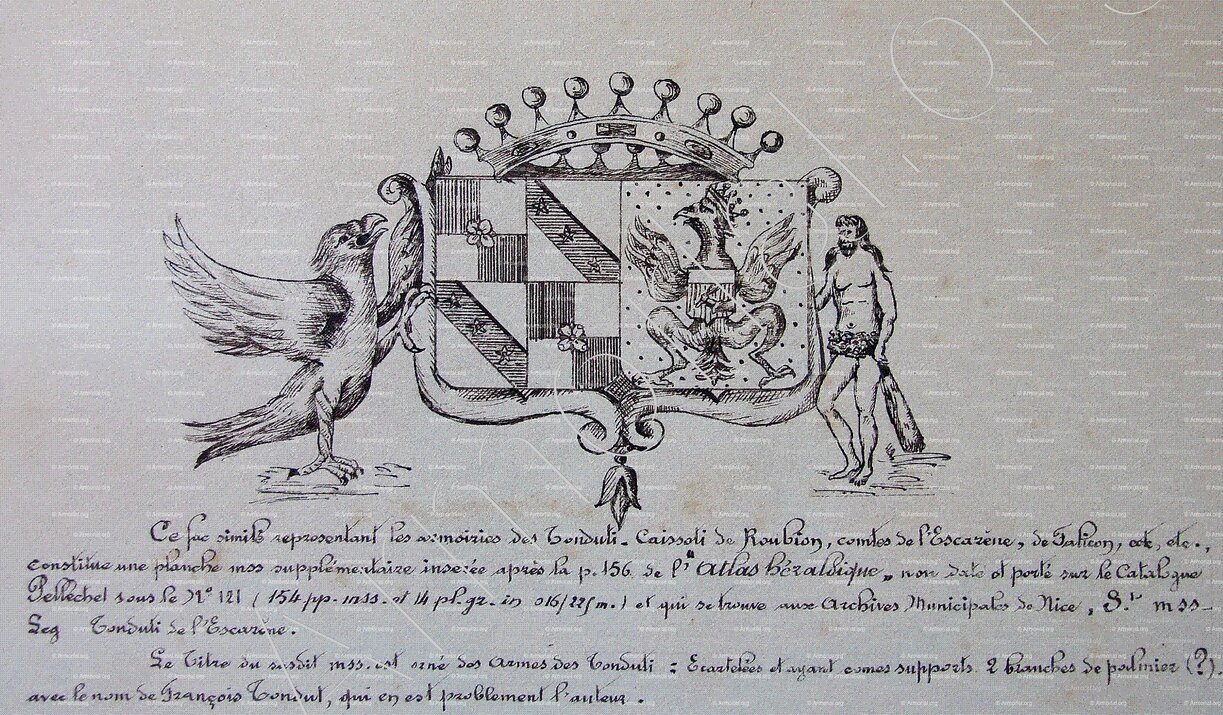 Ce fac similé représentant les armoiries des Tonduti-Caissoti de Roubion, comtes de l'Escarène, de Falicon, etc, etc.,
constitue une planche mss supplémentaire insérée après la p. 156 de l' "Atlas héraldique", non daté et porté sur le Catalogue
Pellechet sous le Nº 121 (154 pp. mss. et 14 pl. gr. in 016/22 f m.) et qui se trouve aux Archives Municipales de Nice, mss-
Leg Tonduti de l'Escarène.
Le Titre du susdit mss. est orné des Armes des Tonduti : Ecartelées et ayant comes supports 2 branches de palmier (?).
avec le nom de François Tondut, qui en est problement l'auteur.